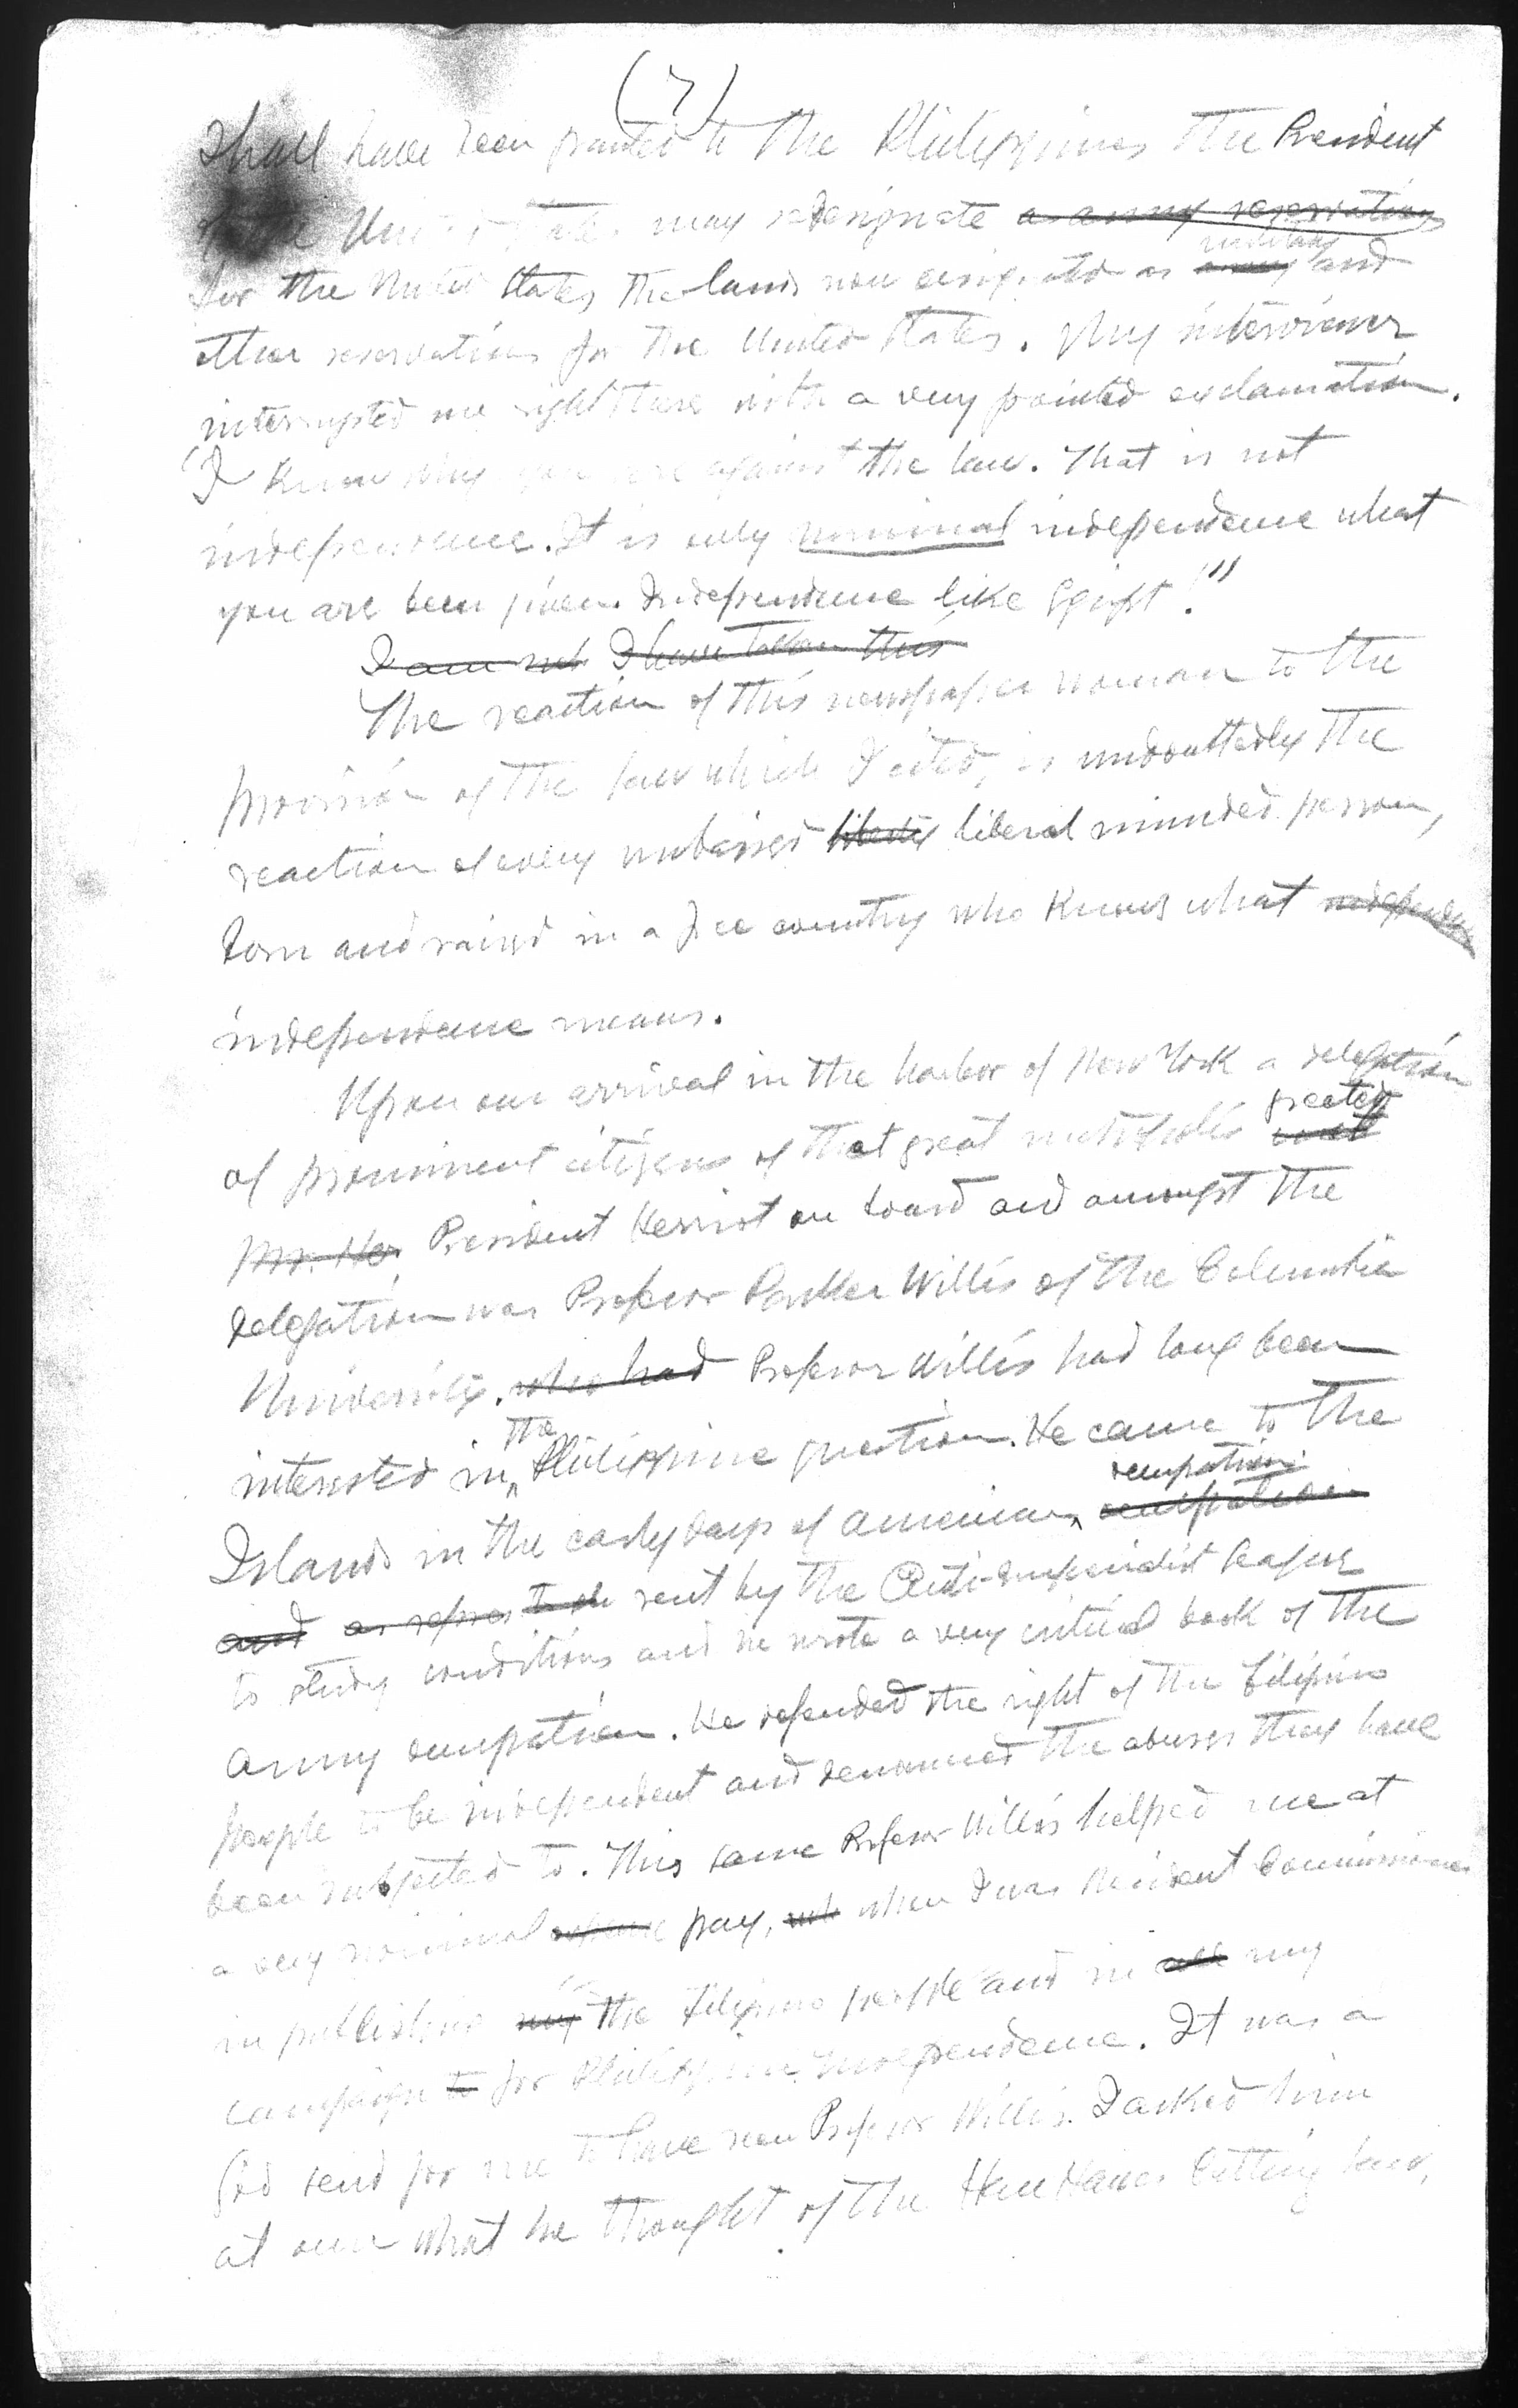 (7)
shall have been granted to the Philippines the President
of the United States may redesignate a army reservations
for the United States the lands now designated as army military and
other reservations for the United States. My interviewer
interrupted me right there with a very pointed exclamation.
"I know why you are against the law. That is not
independence. It is only nominal independence what
you are been given. Independence like Egipt!"
I am not I have taken this
The reaction of this newspaper woman to the
provision of the law which I cited, is undoubttedly the
reaction of every unbaissed liberty liberal minded person,
born and raised in a free country who knows what independen
independence means.
Upon our arrival in the harbor of New York a delegation
of prominent citizens of that great metropolis greeted
Mr. Her President Herriot on board and amongst the
delegation was Professor Parker Willis of the Columbia
University. who had Professor Willis had long been
interested in the Philippine question. He came to the
Islands in the early days of American occupation
and as repres to de sent by the Anti-Imperialist League
to study conditions and he wrote a very critical book of the
Army occupation. He defended the right of the Filipino
people to be independent and denounced the abuses they have
been subjected to. This same Professor Willis helped me at
a very nominal expense pay, when I was Resident Commissioner
in publishing my the Filipino people and in all my
campaign to for Philippine Independence. It was a
God send for me to have seen Professor Willis. I asked him
at once what he thought of the Hare Hawes Cutting law,